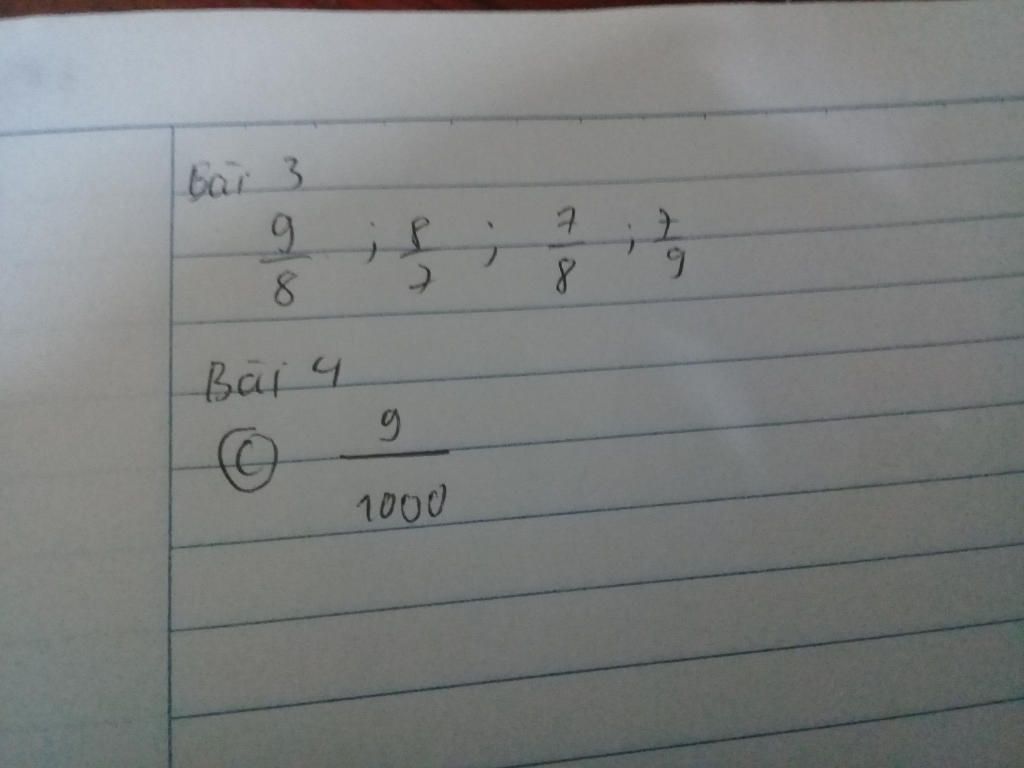 Bài 3
9/8 ; 8/7 ; 7/8 ; 7/9
Bài 4
C 9/1000